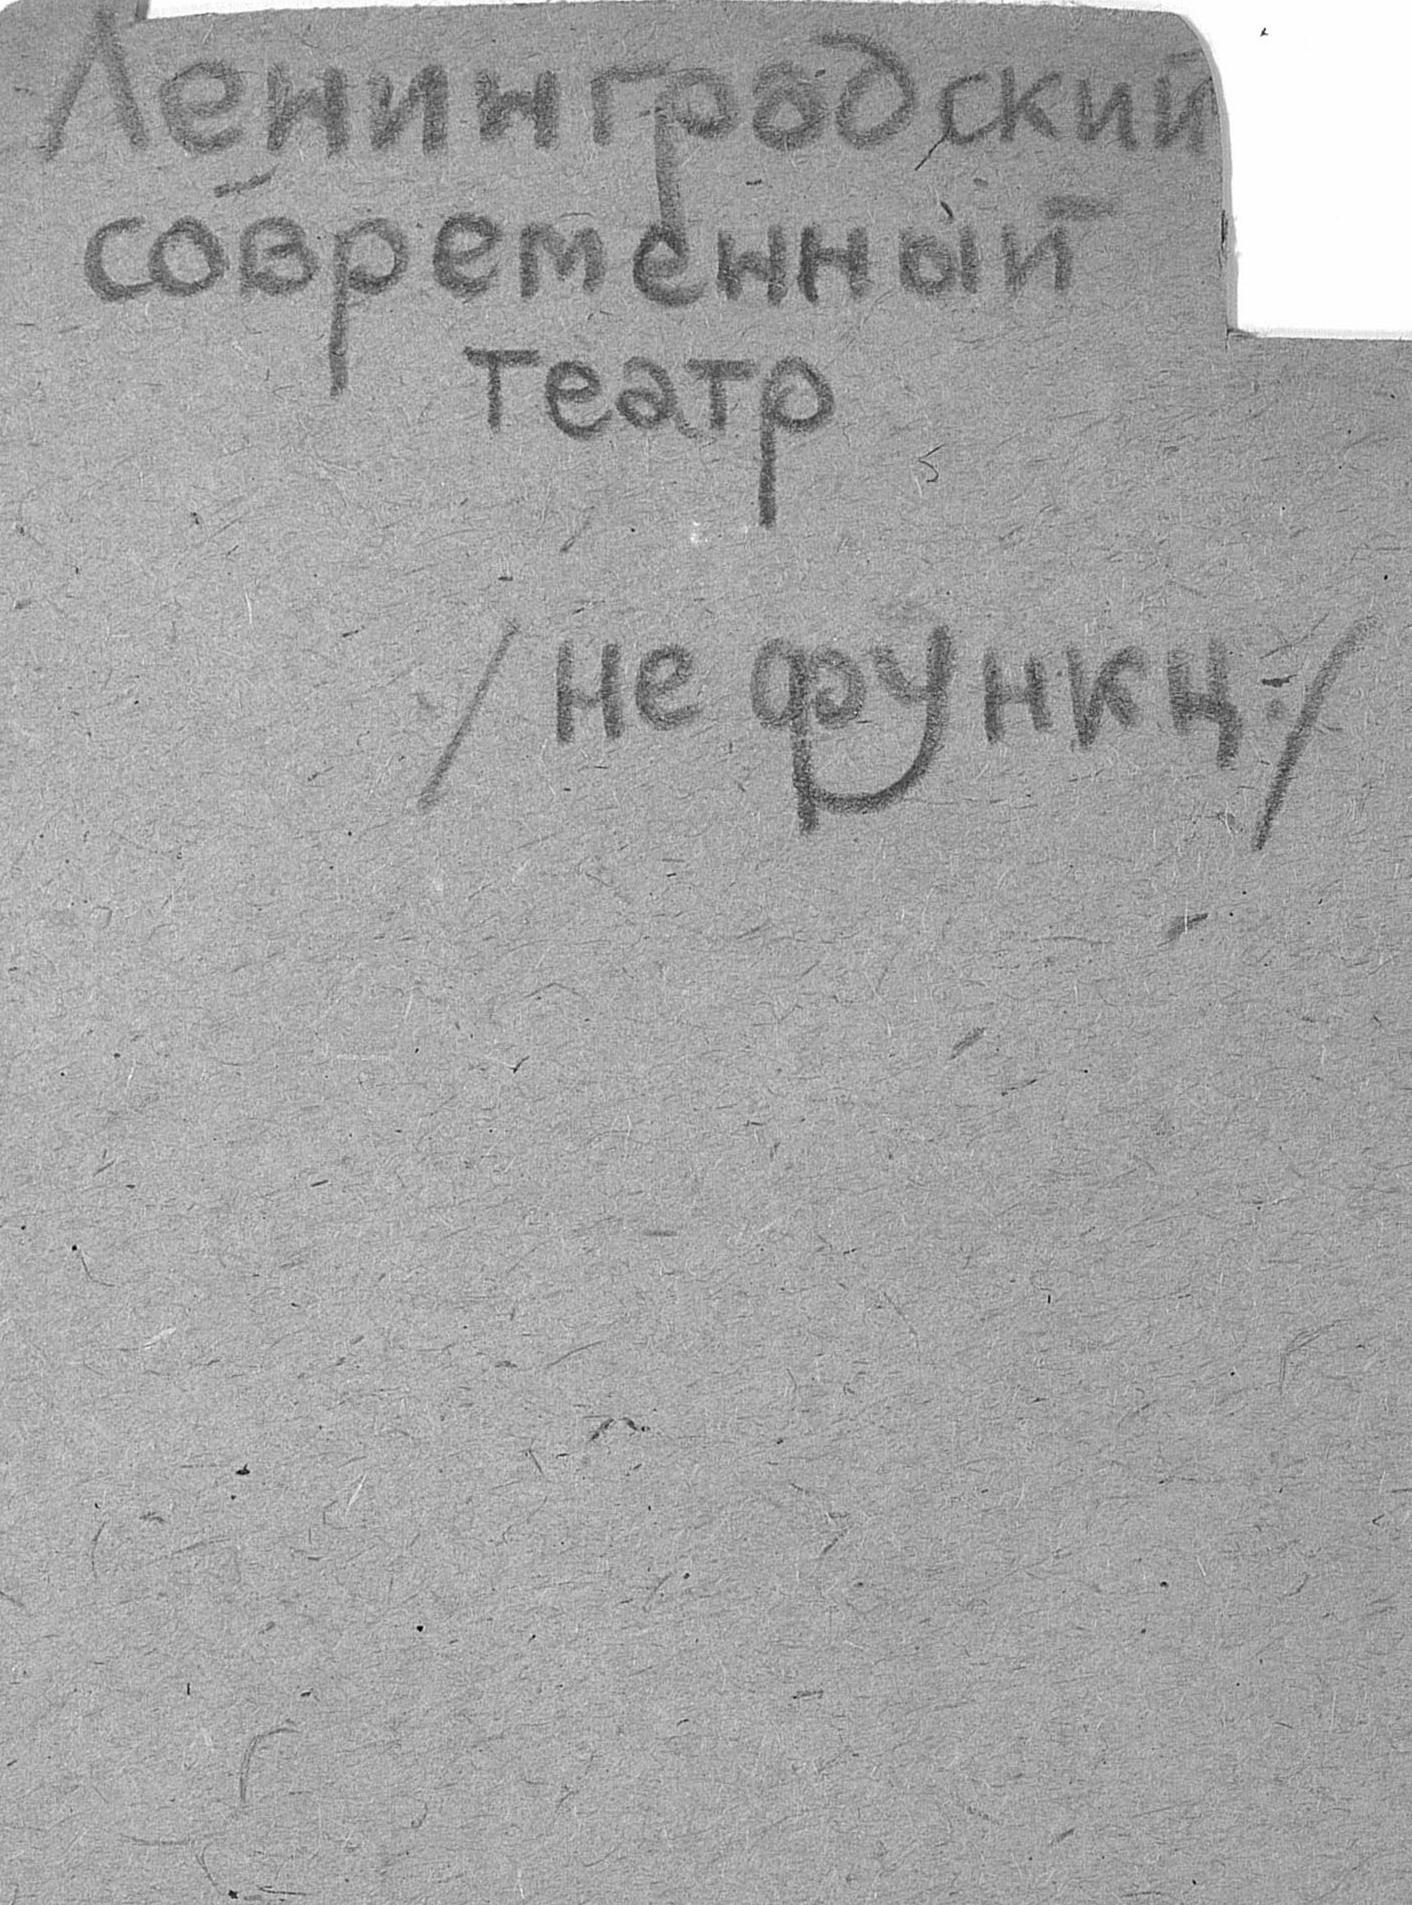 Ленинградский
современный
театр
/не функц./